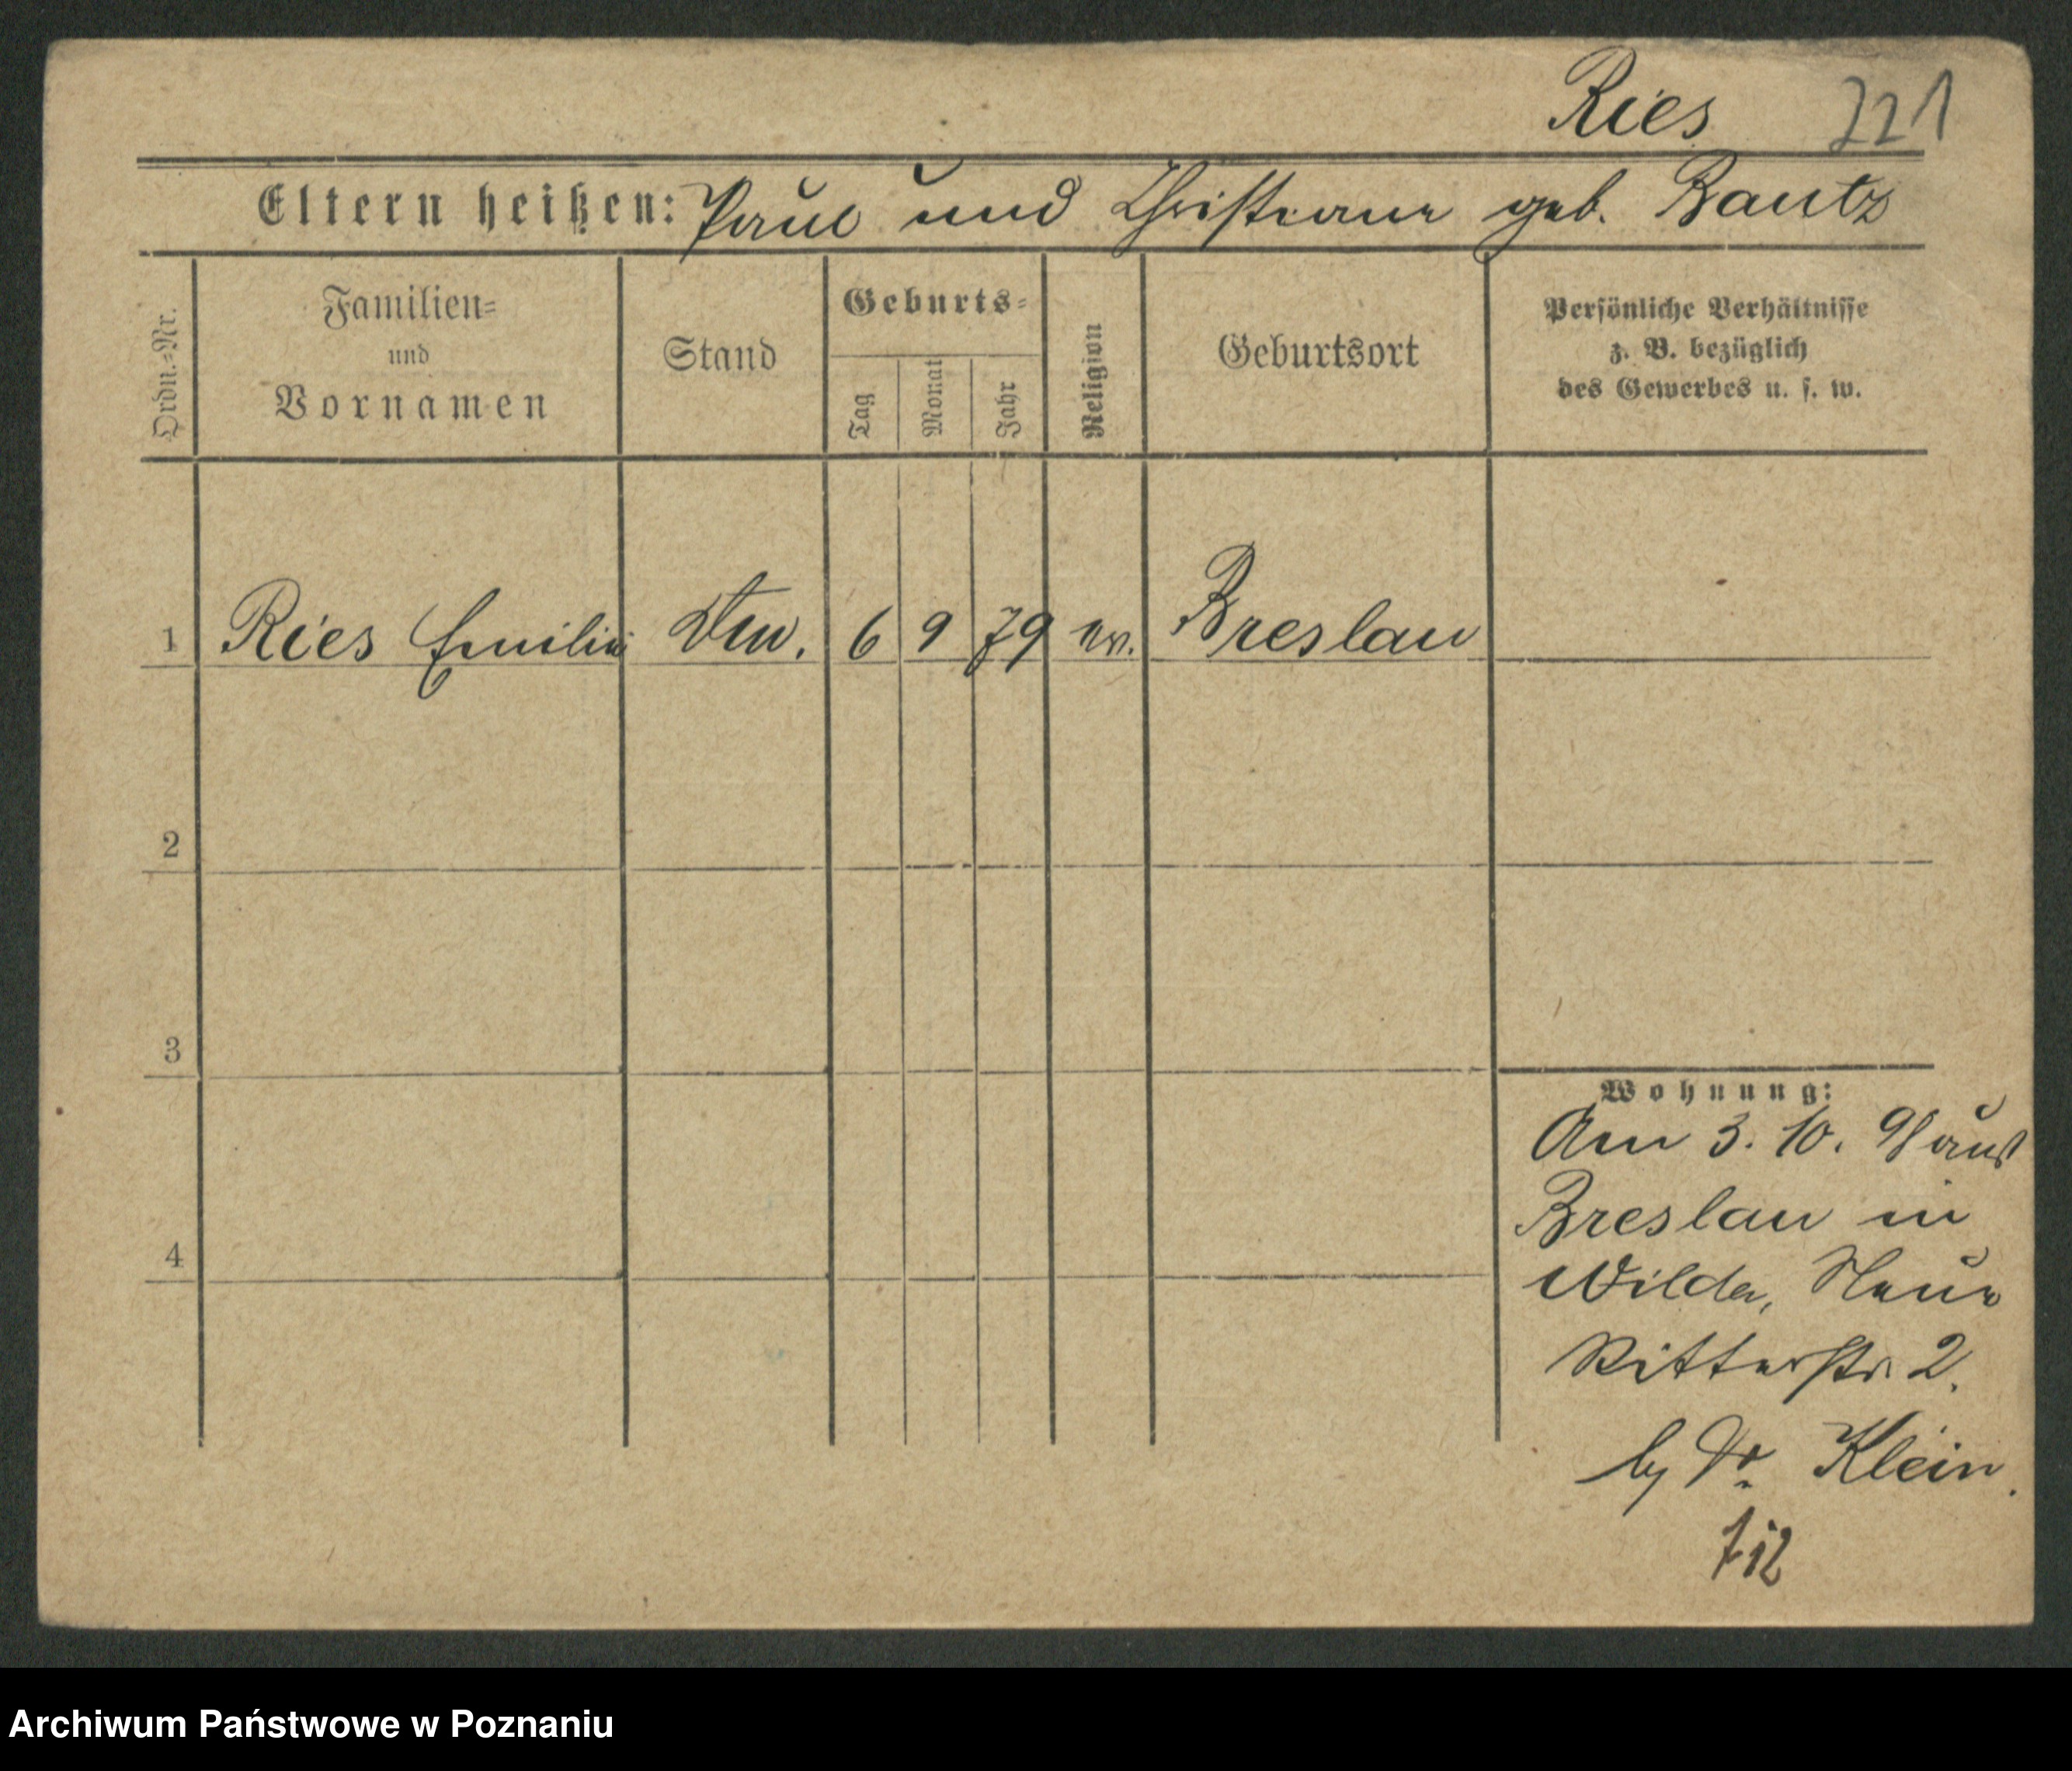 Ries 721
Eltern heißen: Paul und Christiane geb. Bautz
Ordn.=Nr.
Familien=
und
Vornamen
Stand
Geburts=
Tag
Monat
Jahr
Religion
Geburtsort
Persönliche Verhältnisse
z. B. bezüglich
des Gewerbes u. s. w.
1 Ries Emilie 6 9 79 ev. Breslau
2
3
4
Wohnung:
Am 3. 10. 98 aus
Breslau in
Wilda, Neue
Ritterstr. 2.
by Dr Klein.
Archiwum Państwowe w Poznaniu